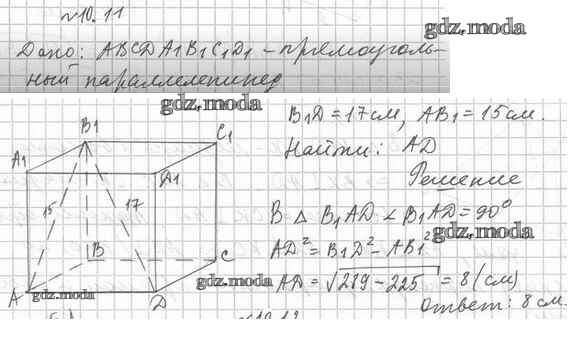 №10.11
gdz.moda
Дано: ABCDA1B1C1D1 - прямоуголь-
ный параллелепипед
gdz.moda
B1D = 17см, AB1 = 15см.
Найти: AD
Решение
В △ B1AD ∠B1AD = 90°
gdz.moda
AD² = B1D² - AB1²
AD = √289 - 225 = 8 (см)
Ответ: 8 см.
B1
C1
A1
Д1
15
17
B
C
gdz.moda
A
gdz.moda
D